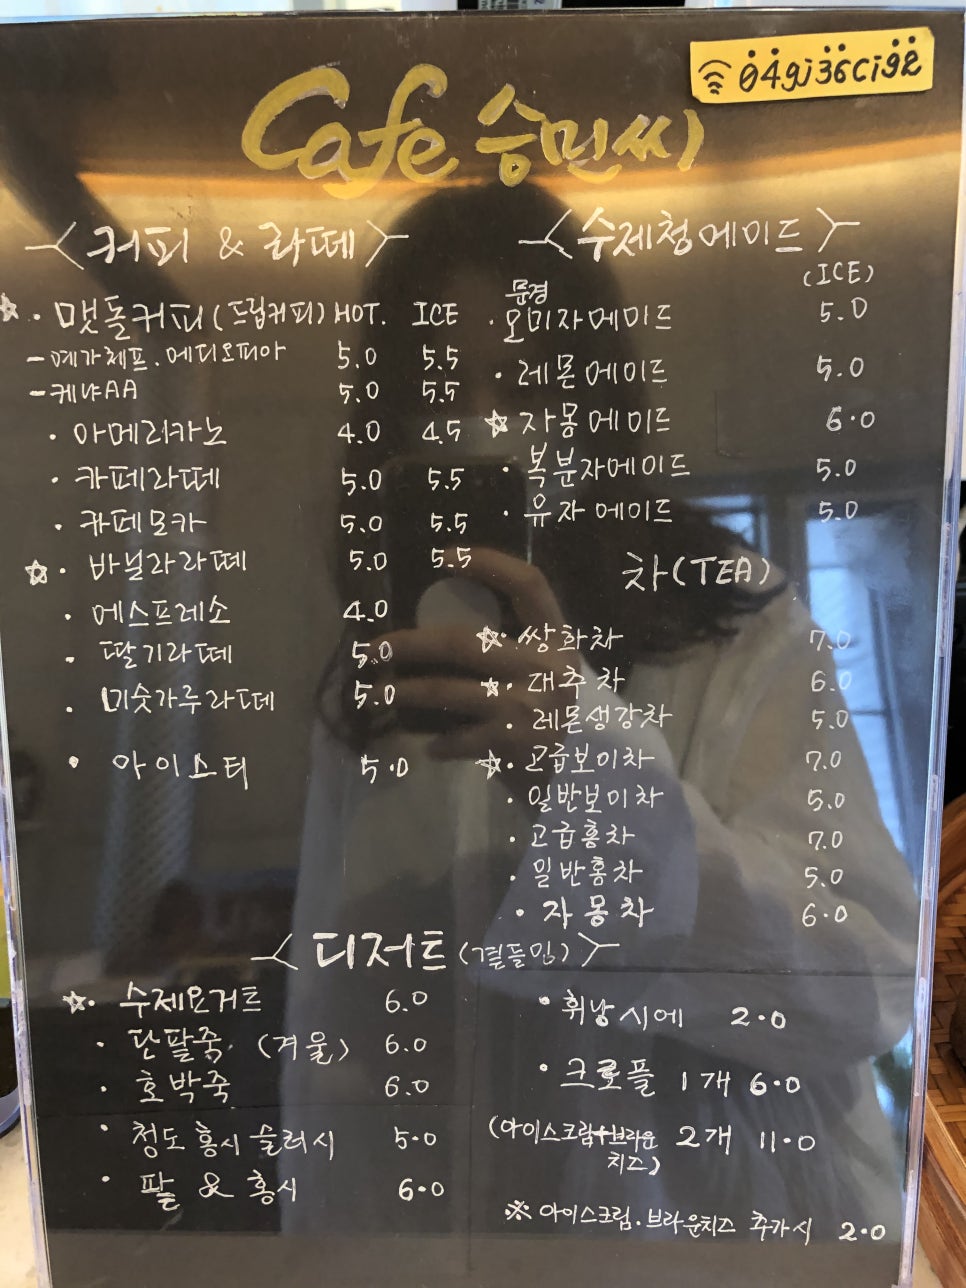 049j36ci92
Cafe 승민씨
커피 & 라떼
☆ · 맷돌커피(드립커피) HOT. ICE
- 예가체프.에디오피아 5.0 5.5
- 케냐AA 5.0 5.5
· 아메리카노 4.0 4.5
· 카페라떼 5.0 5.5
· 카페모카 5.0 5.5
☆ · 바닐라라떼 5.0 5.5
· 에스프레소 4.0
· 딸기라떼 5.0
· 미숫가루라떼 5.0
· 아이스티 5.0
수제청에이드
(ICE)
문경
· 오미자에이드 5.0
· 레몬에이드 5.0
☆ 자몽에이드 6.0
· 복분자에이드 5.0
· 유자에이드 5.0
차(TEA)
☆ · 쌍화차 7.0
☆ · 대추차 6.0
· 레몬생강차 5.0
☆ · 고급보이차 7.0
· 일반보이차 5.0
· 고급홍차 7.0
· 일반홍차 5.0
· 자몽차 6.0
디저트(곁들임)
☆ · 수제요거트 6.0
· 단팥죽 (겨울) 6.0
· 호박죽 6.0
· 청도홍시 슬러시 5.0
· 팥 & 홍시 6.0
· 휘낭시에 2.0
· 크로플 1개 6.0
(아이스크림+브라운 2개 11.0
치즈)
※ 아이스크림.브라운치즈 추가시 2.0